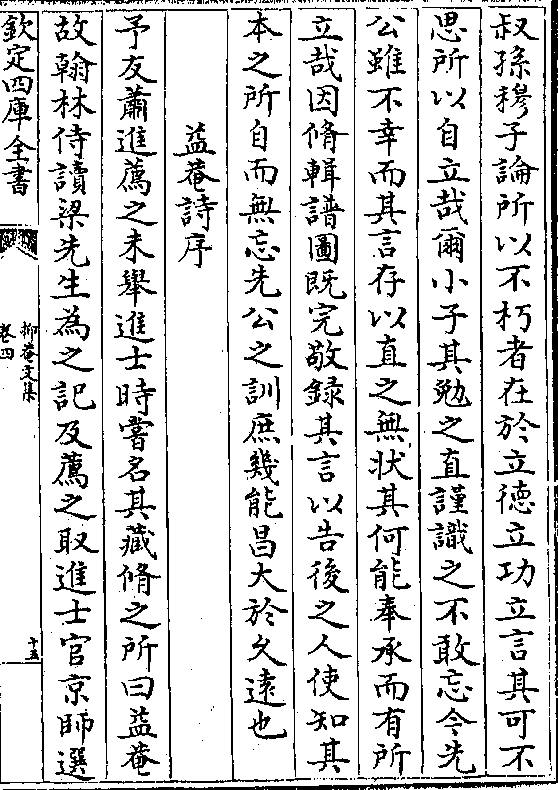 叔孫穆子論所以不朽者在於立徳立功立言其可不
思所以自立哉爾小子其勉之直謹識之不敢忘今先
公雖不幸而其言存以直之無状其何能奉承而有所
立哉因脩輯譜圖既完敬録其言以告後之人使知其
本之所自而無忘先公之訓庶幾能昌大於久遠也
益菴詩序
予友蕭進薦之未舉進士時嘗名其藏脩之所曰益菴
故翰林侍讀梁先生為之記及薦之取進士官京師選
欽定四庫全書
抑菴文集
卷四
十五